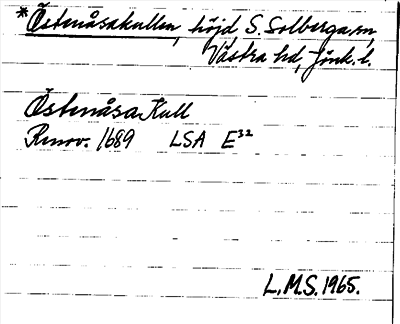 *Östenåsakullen, höjd S. Solberga sn,
Västra hd, Jönk. l.
Östenåsa Kull
Renov. 1689 LSA E³²
L.M.S. 1965.